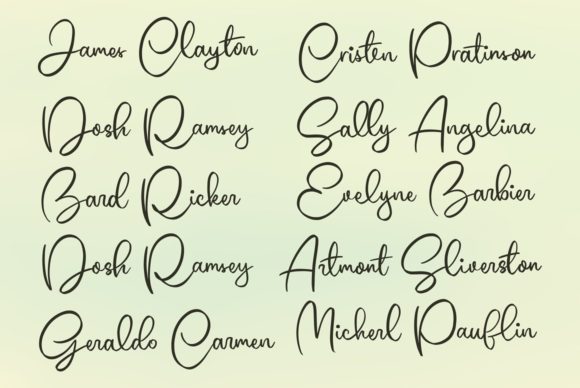 James Clayton
Dosh Ramsey
Bard Ricker
Dosh Ramsey
Geraldo Carmen
Cristen Pratinson
Sally Angelina
Evelyne Barbier
Artmont Sliverston
Micherl Pauflin